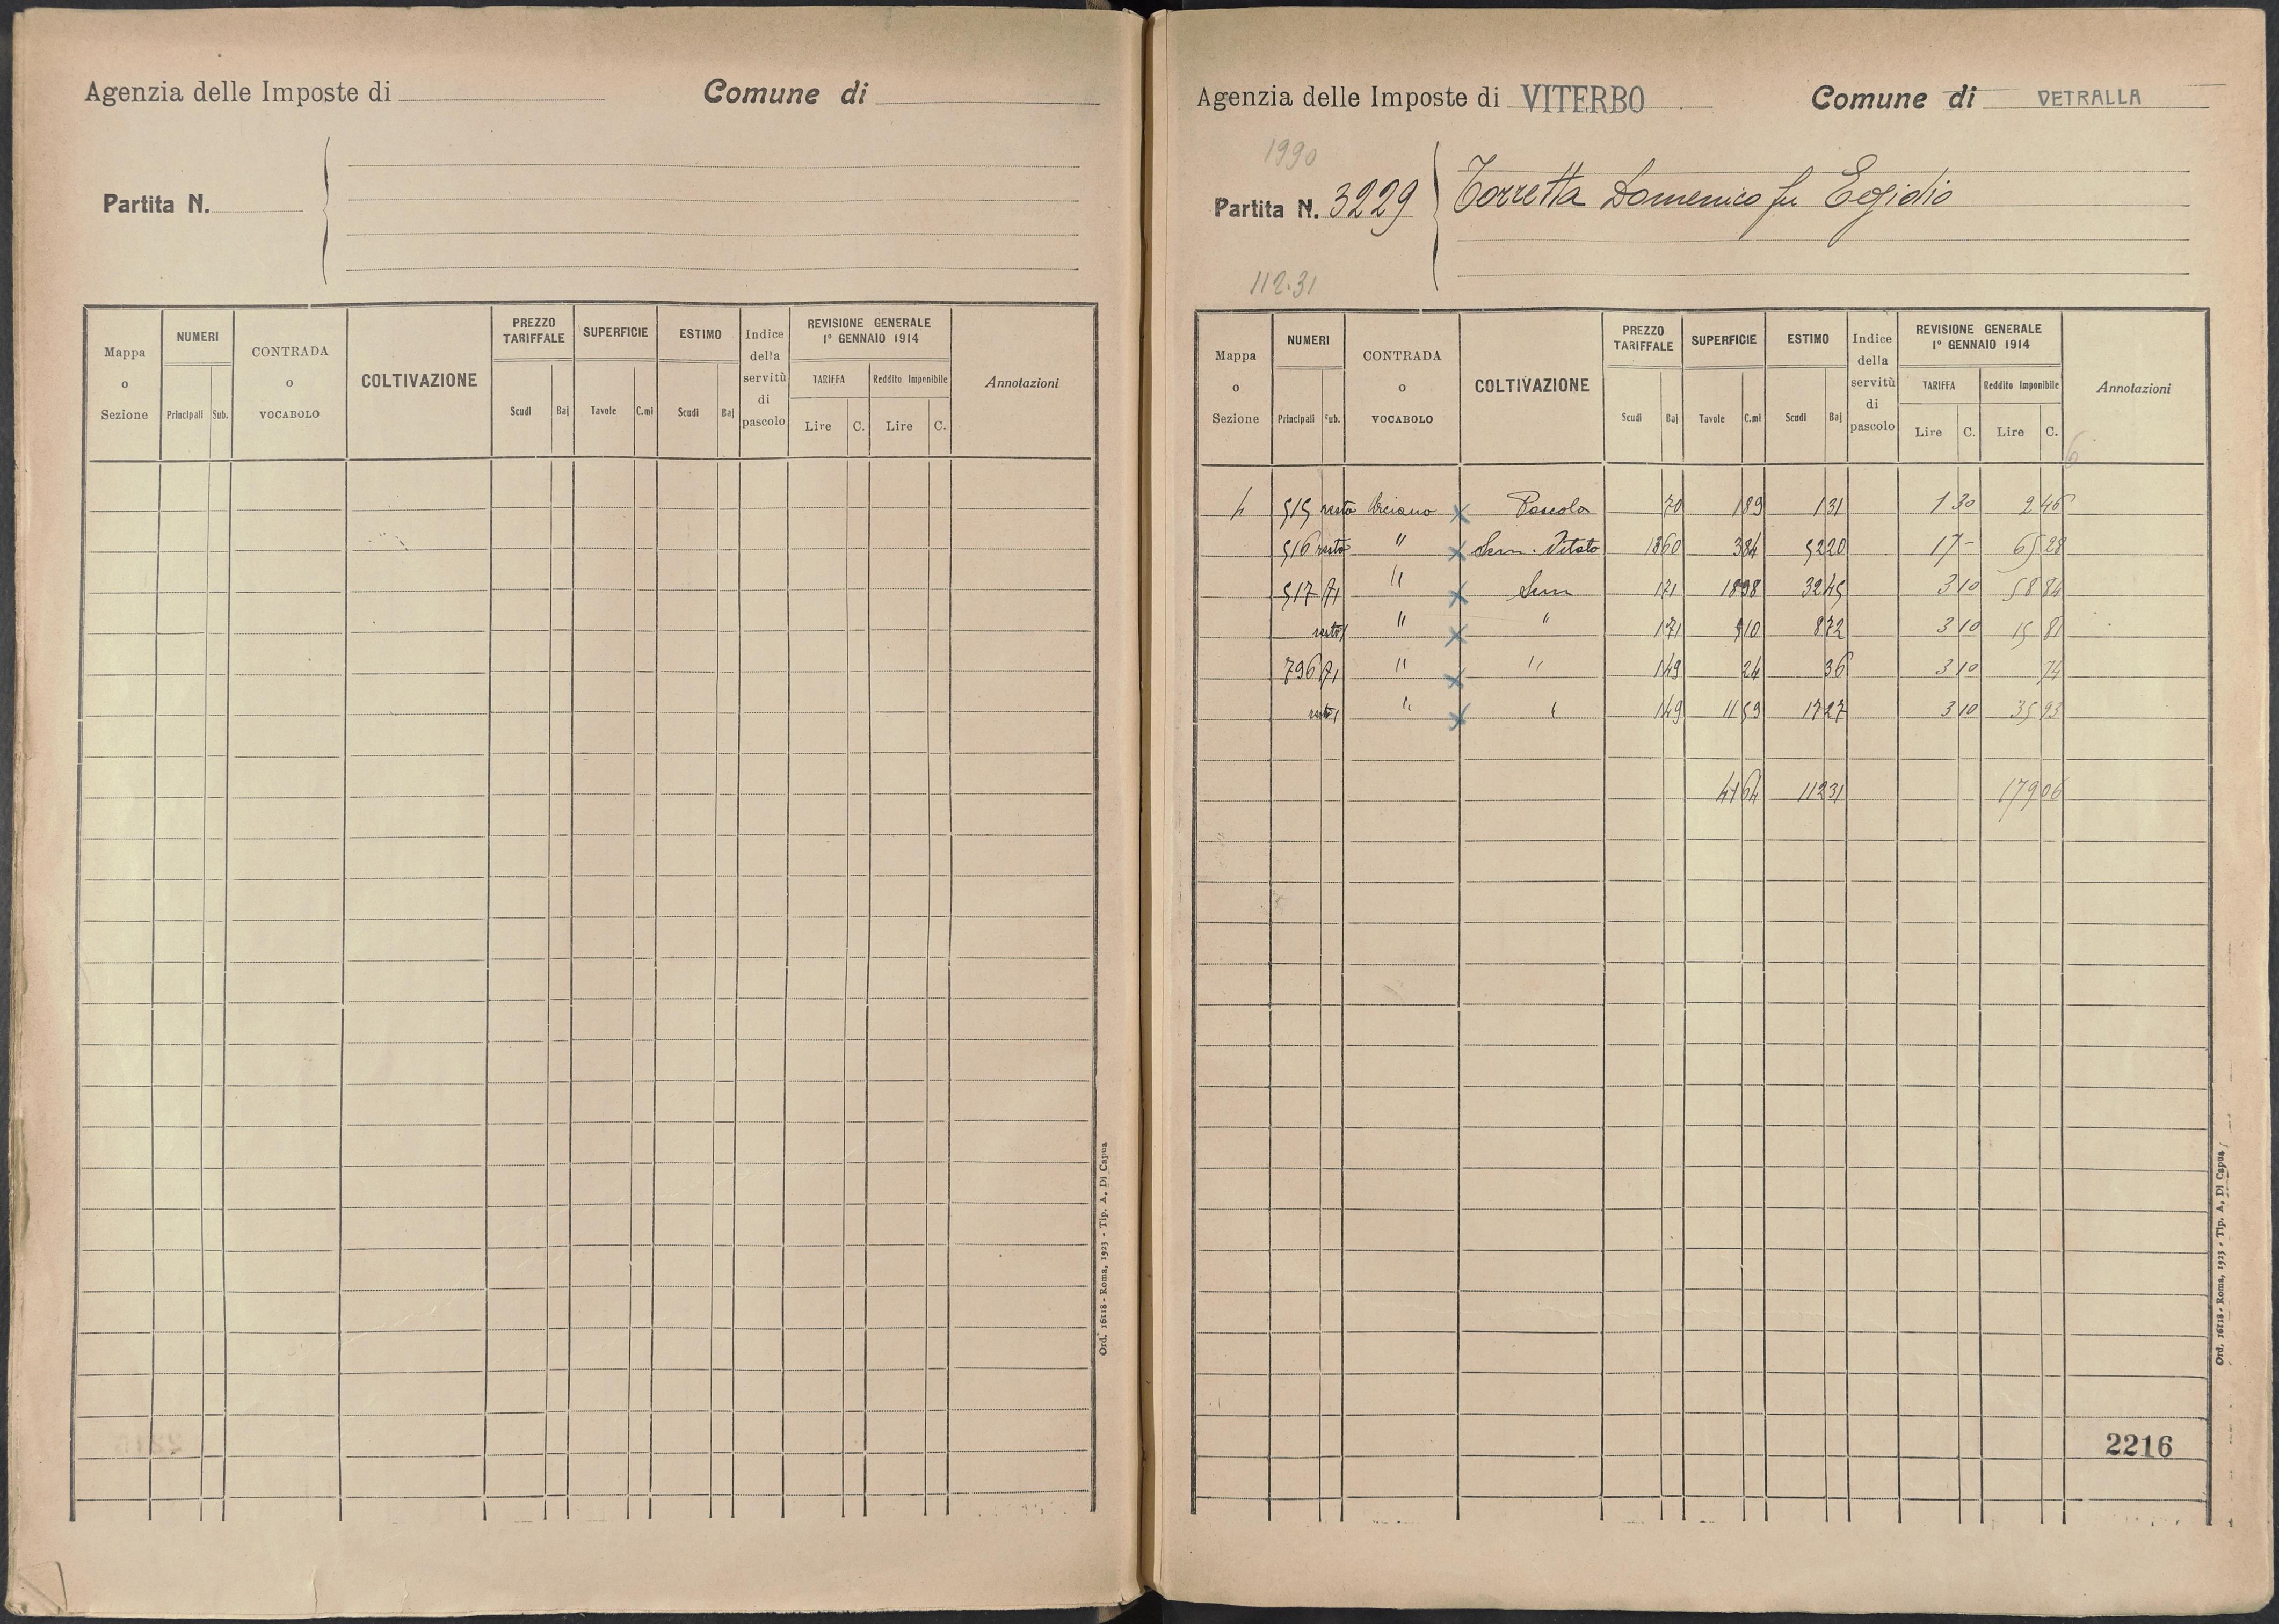 Agenzia delle Imposte di
Comune di
Partita N.
Mappa o Sezione
NUMERI
Principali Sub.
CONTRADA o VOCABOLO
COLTIVAZIONE
PREZZO TARIFFALE
Scudi Baj
SUPERFICIE
Tavole C.mi
ESTIMO
Scudi Baj
Indice della servitù di pascolo
REVISIONE GENERALE
1° GENNAIO 1914
TARIFFA
Lire C.
Reddito Imponibile
Lire C.
Annotazioni
Ord. 16118 - Roma, 1923 - Tip. A. Di Capua
Agenzia delle Imposte di VITERBO
Comune di VETRALLA
1990
Partita N. 3229
Torretta Domenico fu Egidio
112.31
Mappa o Sezione
NUMERI
Principali Sub.
CONTRADA o VOCABOLO
COLTIVAZIONE
PREZZO TARIFFALE
Scudi Baj
SUPERFICIE
Tavole C.mi
ESTIMO
Scudi Baj
Indice della servitù di pascolo
REVISIONE GENERALE
1° GENNAIO 1914
TARIFFA
Lire C.
Reddito Imponibile
Lire C.
Annotazioni
515 resto x Pascolo 70 1 89 1 31 1 30 2 46
516 resto " x Sem. Vitato 13 60 3 84 52 20 17 - 65 28
517 " x Sem 1 71 18 98 32 45 3 10 58 84
resto " x " 1 71 5 10 8 72 3 10 15 81
796 " x " 1 49 24 36 3 10 74
resto " x " 1 49 11 59 17 27 3 10 35 93
41 64 112 31 179 06
2216
Ord. 16118 - Roma, 1923 - Tip. A. Di Capua